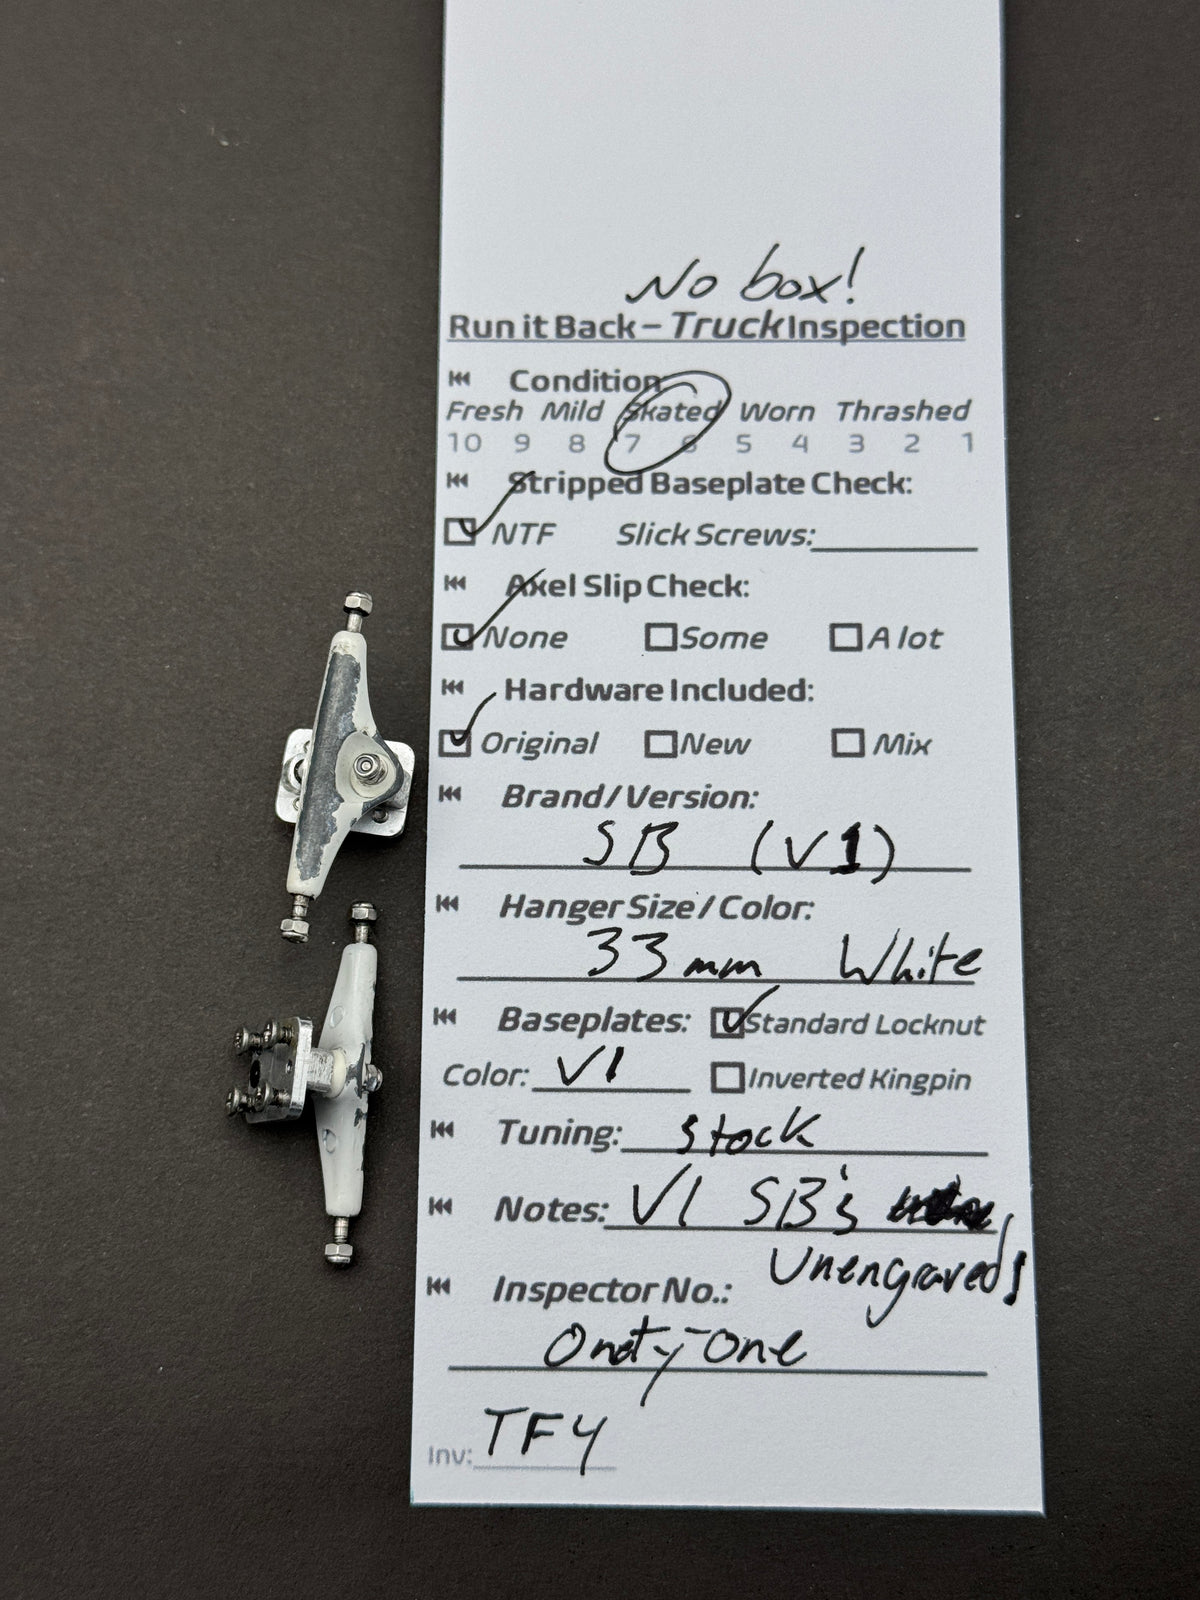 No box!
Run it Back – Truck Inspection
Condition
Fresh Mild Skated Worn Thrashed
10 9 8 7 6 5 4 3 2 1
Stripped Baseplate Check:
NTF Slick Screws:
Axel Slip Check:
None Some A lot
Hardware Included:
Original New Mix
Brand/Version:
SB (V1)
Hanger Size/Color:
33mm White
Baseplates: Standard Locknut
Color: V1 Inverted Kingpin
Tuning: Stock
Notes: V1 SB's
Unengraveds
Inspector No.:
Onety-One
Inv: TFY